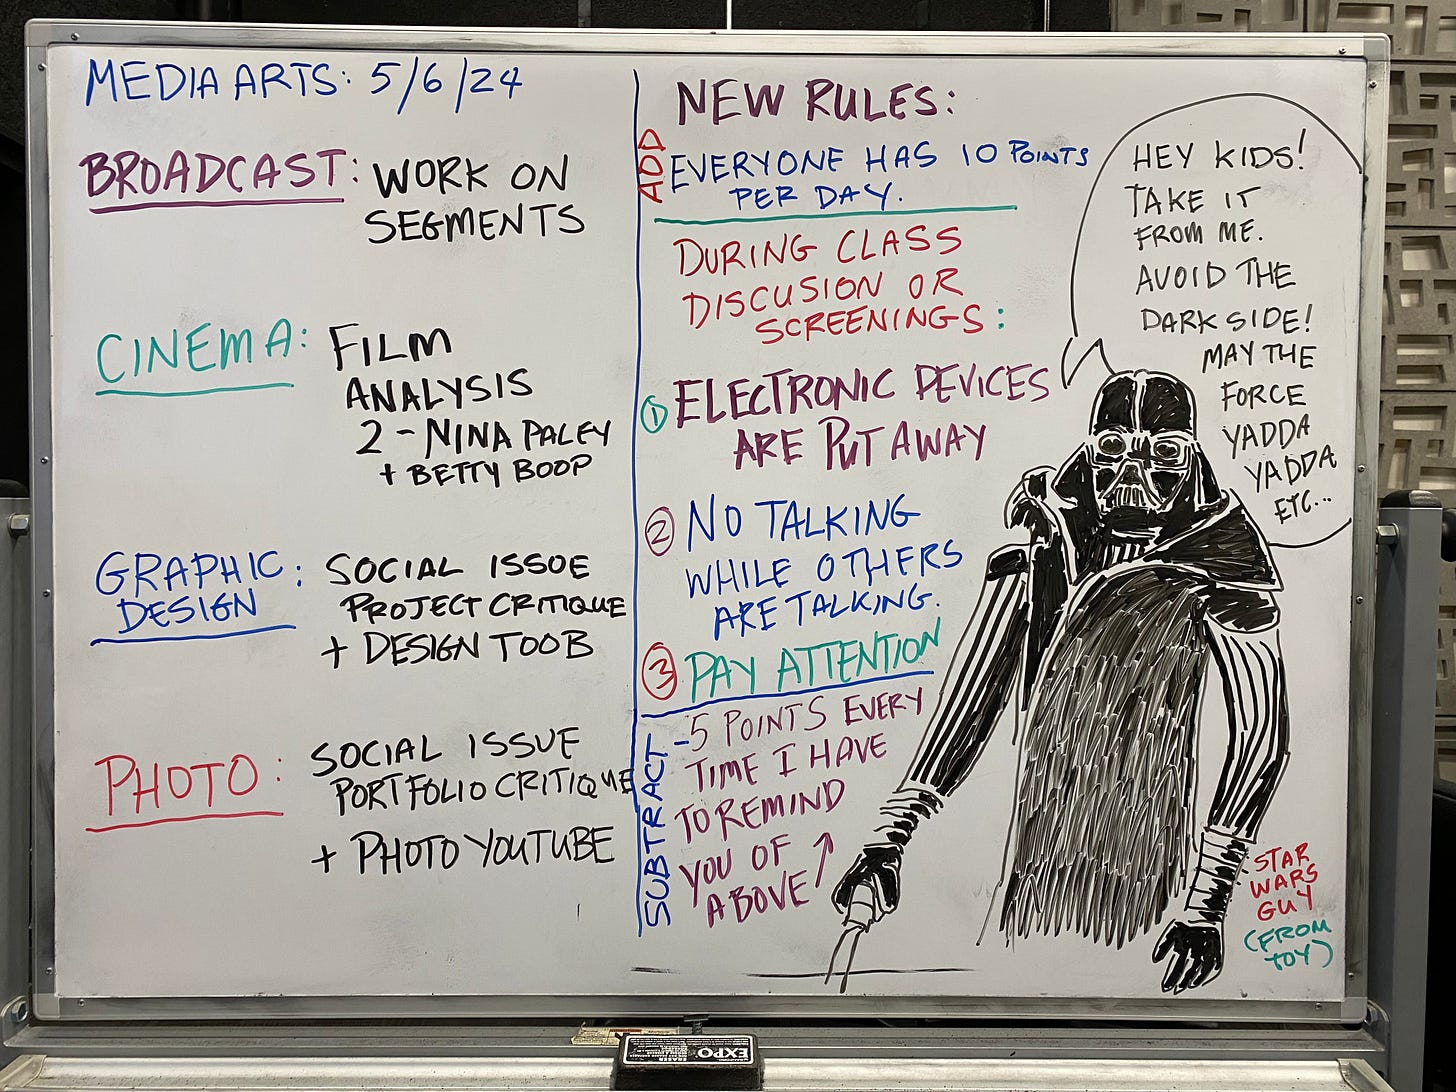 MEDIA ARTS: 5/6/24
BROADCAST: WORK ON
SEGMENTS
CINEMA: FILM
ANALYSIS
2 - NINA PALEY
+ BETTY BOOP
GRAPHIC
DESIGN: SOCIAL ISSUE
PROJECT CRITIQUE
+ DESIGN TOOB
PHOTO: SOCIAL ISSUE
PORTFOLIO CRITIQUE
+ PHOTO YOUTUBE
NEW RULES:
ADD
EVERYONE HAS 10 POINTS
PER DAY.
DURING CLASS
DISCUSION OR
SCREENINGS:
1 ELECTRONIC DEVICES
ARE PUT AWAY
2 NO TALKING
WHILE OTHERS
ARE TALKING.
3 PAY ATTENTION
SUBTRACT
-5 POINTS EVERY
TIME I HAVE
TO REMIND
YOU OF
ABOVE
HEY KIDS!
TAKE IT
FROM ME.
AVOID THE
DARK SIDE!
MAY THE
FORCE
YADDA
YADDA
ETC...
STAR
WARS
GUY
(FROM
TOY)
EXPO
ERASER